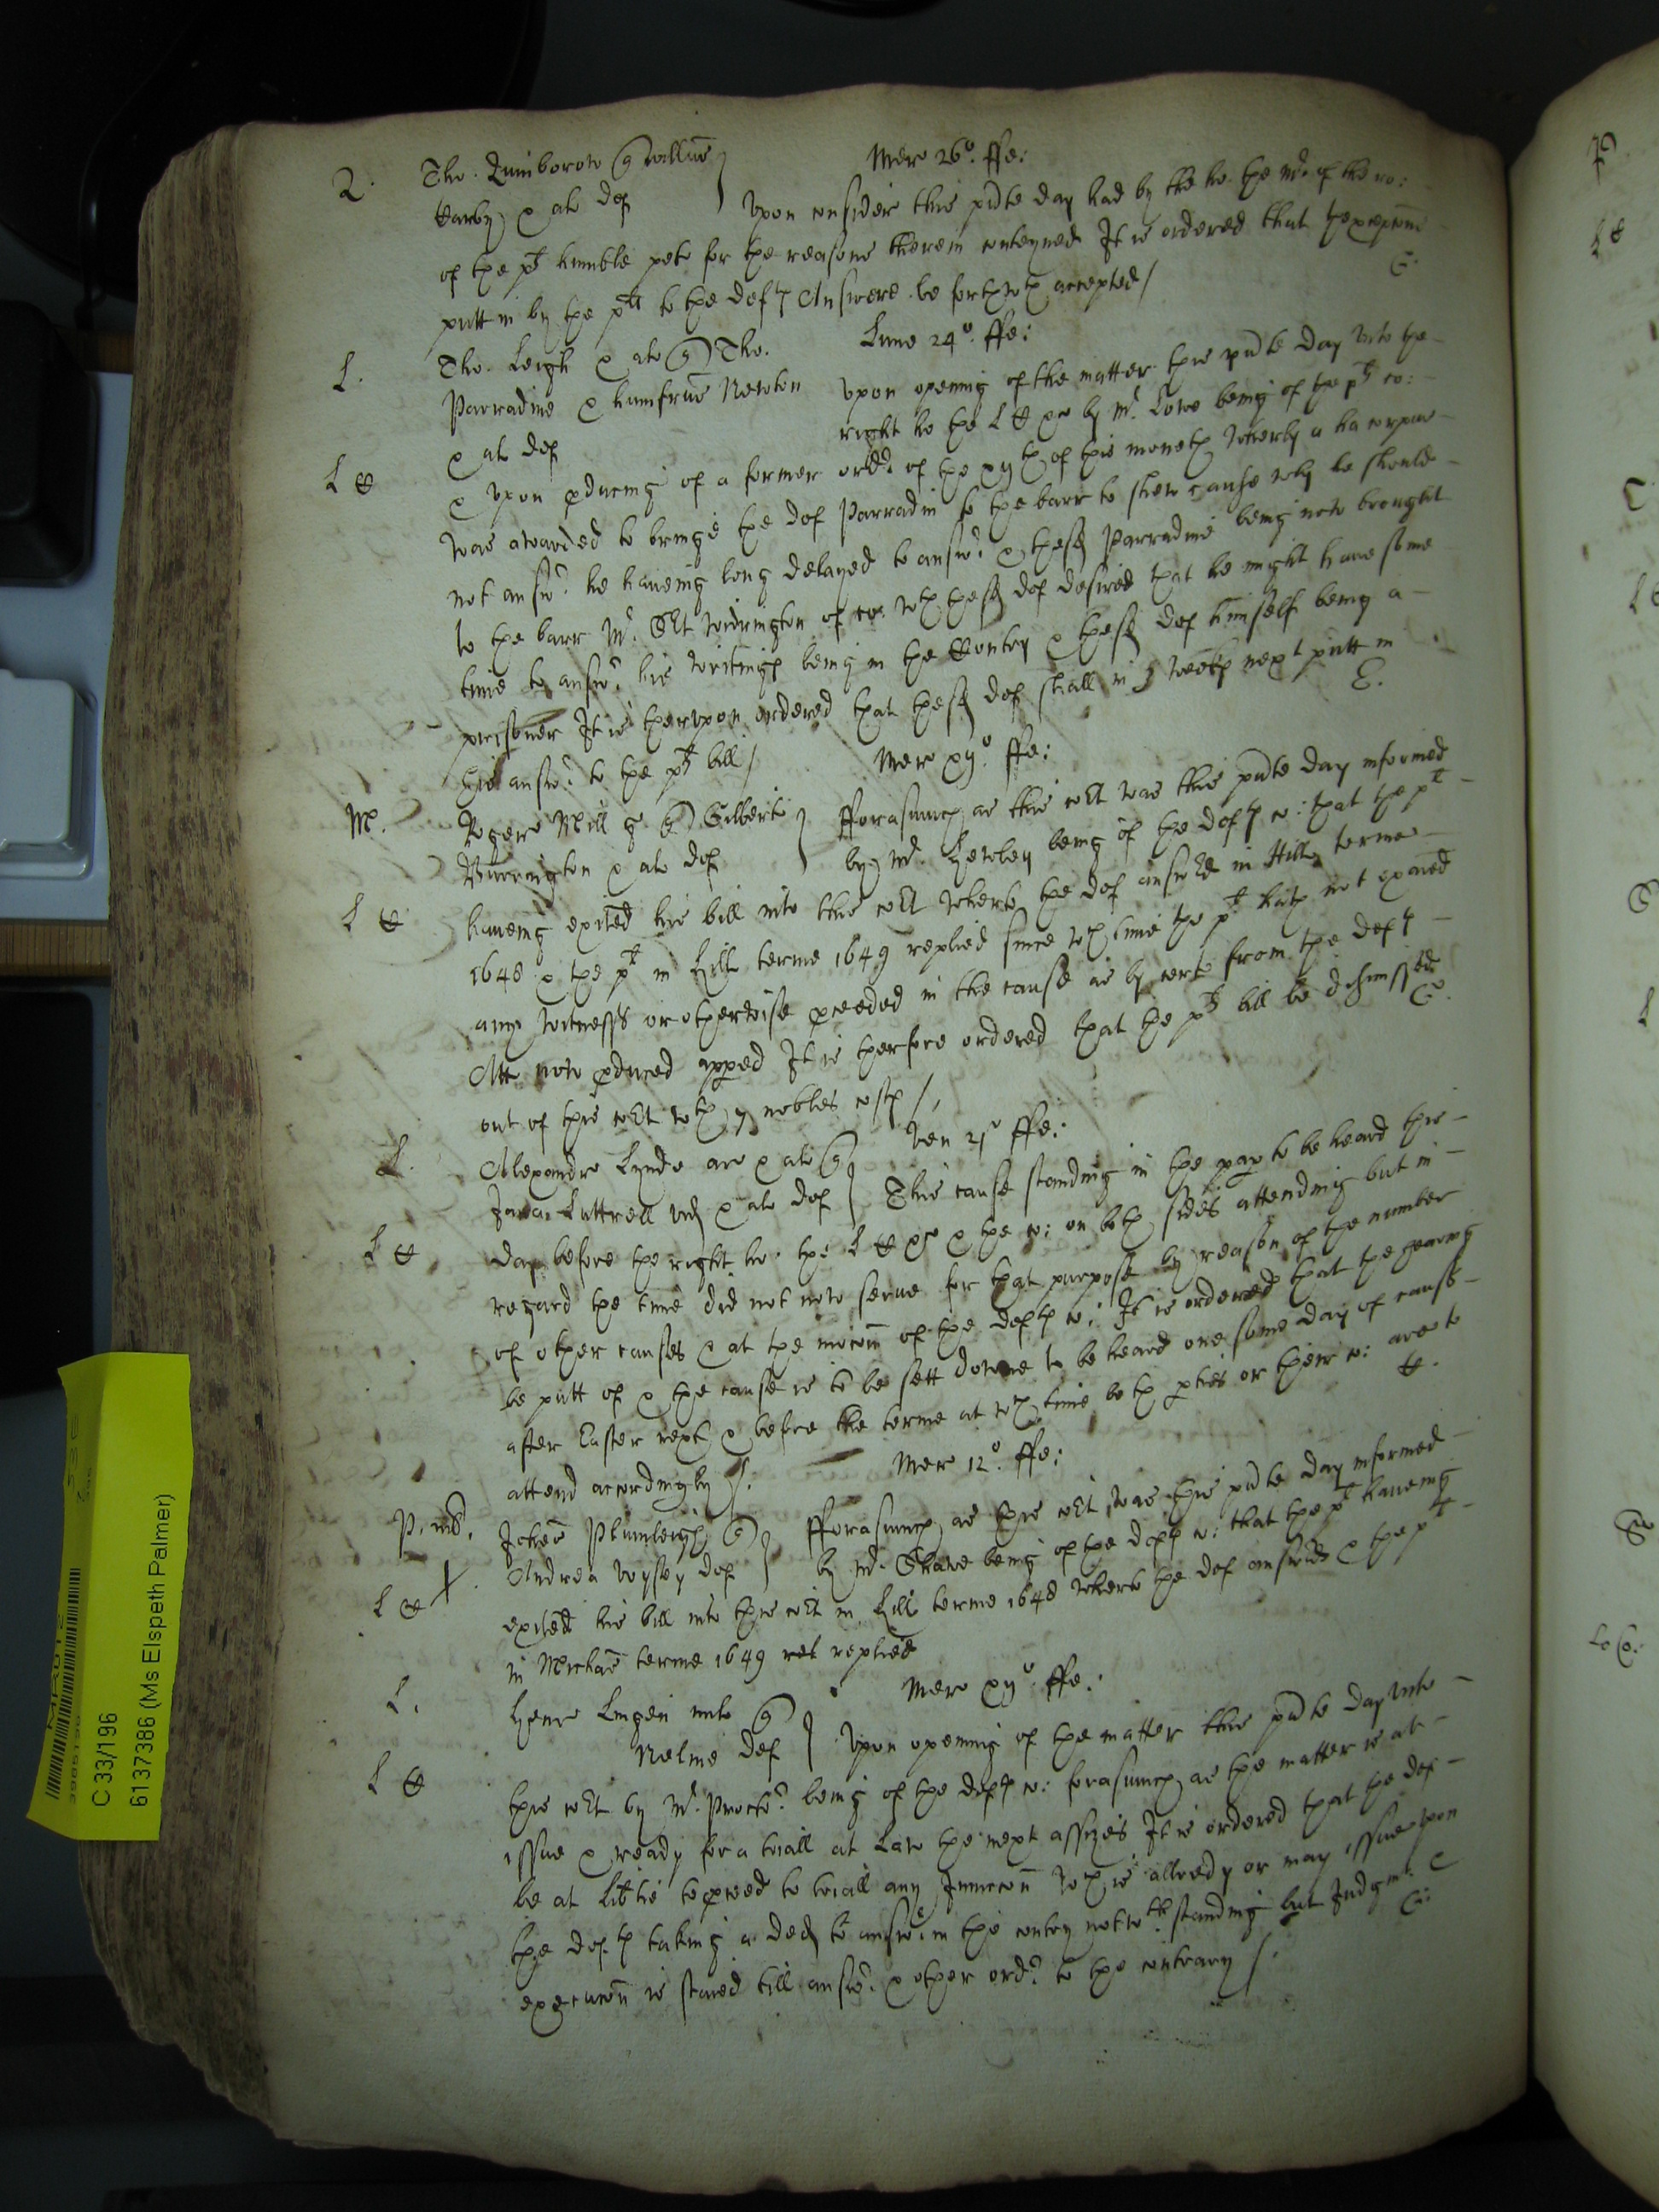 Mer 26º. ffe:
Q. Tho. Quinborow q
Harby & al def Upon consider this pnte day had by the ho. the Mr. of the ro:
of the plt humble peto for the reasons therein conteyned It is ordered that
putt in by the plt to the defts Answere be forthwth accepted /
Lune 24º. ffe:
L. Tho. Leigh & al q Tho.
Parradine & humfrus Newton Upon opening of the matter this pnte day unto the
& al def right ho the L C &c by Mr. Lowe being of the plts co:
L C & Upon pducing of a former ordr of the xijth of this moneth wherby a ha corpus
was awarded to bringe the def Parradin to the barr to shew cause why he should
not answr he haveing long delayed to answr & the sd Parradine being now brought
to the barr Mr. Widrington of co. wth the sd def desired that he might have some
time to answr his writings being in the Contry & the sd def himself being a
prisoner It is therupon ordered that the sd def shall in 3 weeks next putt in
his answr to the plts bill / E.
Mer xijº. ffe:
M. Rogers Mill q Gilberte fforasmuch as this cort was this pnte day informed
Purrington & al def by Mr. being of the defts co: that the plt
L C haveing exited his bill into this cort wherto the def answred in Hill terme
1648 & the plt in Hill terme 1649 replied since wch time the plt hath not exaied
any witnesses or otherwise pceeded in the cause as by cert from the defts
Att now pduced apped It is therfore ordered that the plts bill be dismissed
out of this cort wth nobles costs /
Ven 21º ffe:
L. Alexandr Lynde ar & al q
Luttrell & al def This cause standing in the pap to be heard this
L C day before the right ho. the L C &c & the co: on both sides attending but in
regard the time did not now serve for that purpose by reason of the number
of other causes & at the mocon of the defts co: It is ordered that the heareing
be putt of & the cause is to be sett downe to be heard one some day of causes
after Easter next & before the terme at wch time both pties or their co: are to
attend accordingly /
Mer 12º. ffe:
P. Johes Plumleigh q fforasmuch as this cort was this pnte day informed
Andrea def by Mr. Shawe being of the defts co: that the plt haveing
L C X exited his bill into this cort in Hill terme 1648 wherto the def answred & the plt
in Michas terme 1649 replied
Mer xijº. ffe:
L. Henr Lingen q
Nelme def Upon opening of the matter this pnte day unto
L C this cort by Mr. Proctor being of the defts co: forasmuch as the matter is at
issue & ready for a triall at Law the next assizes It is ordered that the def
be at Libtie to pceed to triall any Iniuncon wch is allredy or may issue upon
the defts taking a ded to answr in the contry notwthstanding but Judgmt &
execucon is staied till answr & other ordr to the contrary /
C 33/196
6137386 (Ms Elspeth Palmer)